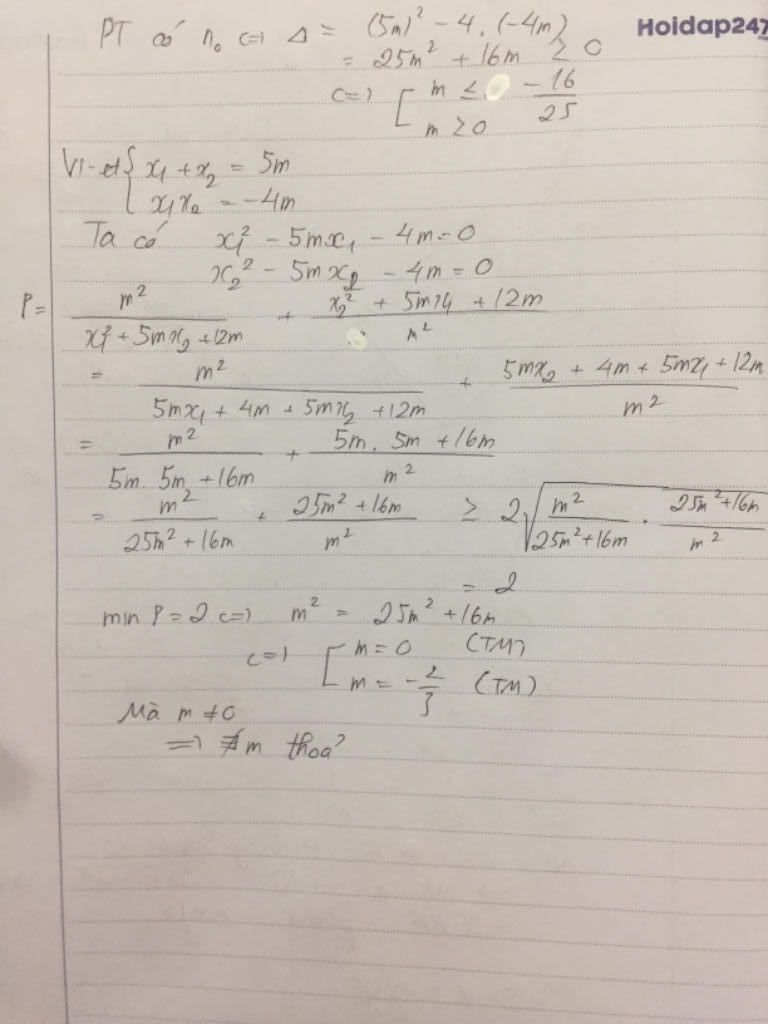 Hoidap247
PT có n₀ <=> Δ = (5m)² - 4.(-4m)
= 25m² + 16m ≥ 0
<=> [ m ≤ -16/25
m ≥ 0
Vi-et { x₁ + x₂ = 5m
x₁x₂ = -4m
Ta có x₁² - 5mx₁ - 4m = 0
x₂² - 5mx₂ - 4m = 0
P = m²/(x₁² + 5mx₂ + 12m) + (x₂² + 5mx₁ + 12m)/m²
= m²/(5mx₁ + 4m + 5mx₂ + 12m) + (5mx₂ + 4m + 5mx₁ + 12m)/m²
= m²/(5m. 5m + 16m) + (5m. 5m + 16m)/m²
= m²/(25m² + 16m) + (25m² + 16m)/m² ≥ 2√(m²/(25m² + 16m) . (25m² + 16m)/m²)
= 2
min P = 2 <=> m² = 25m² + 16m
<=> [ m = 0 (TM)
m = -2/3 (TM)
Mà m ≠ 0
=> ∄ m thoả